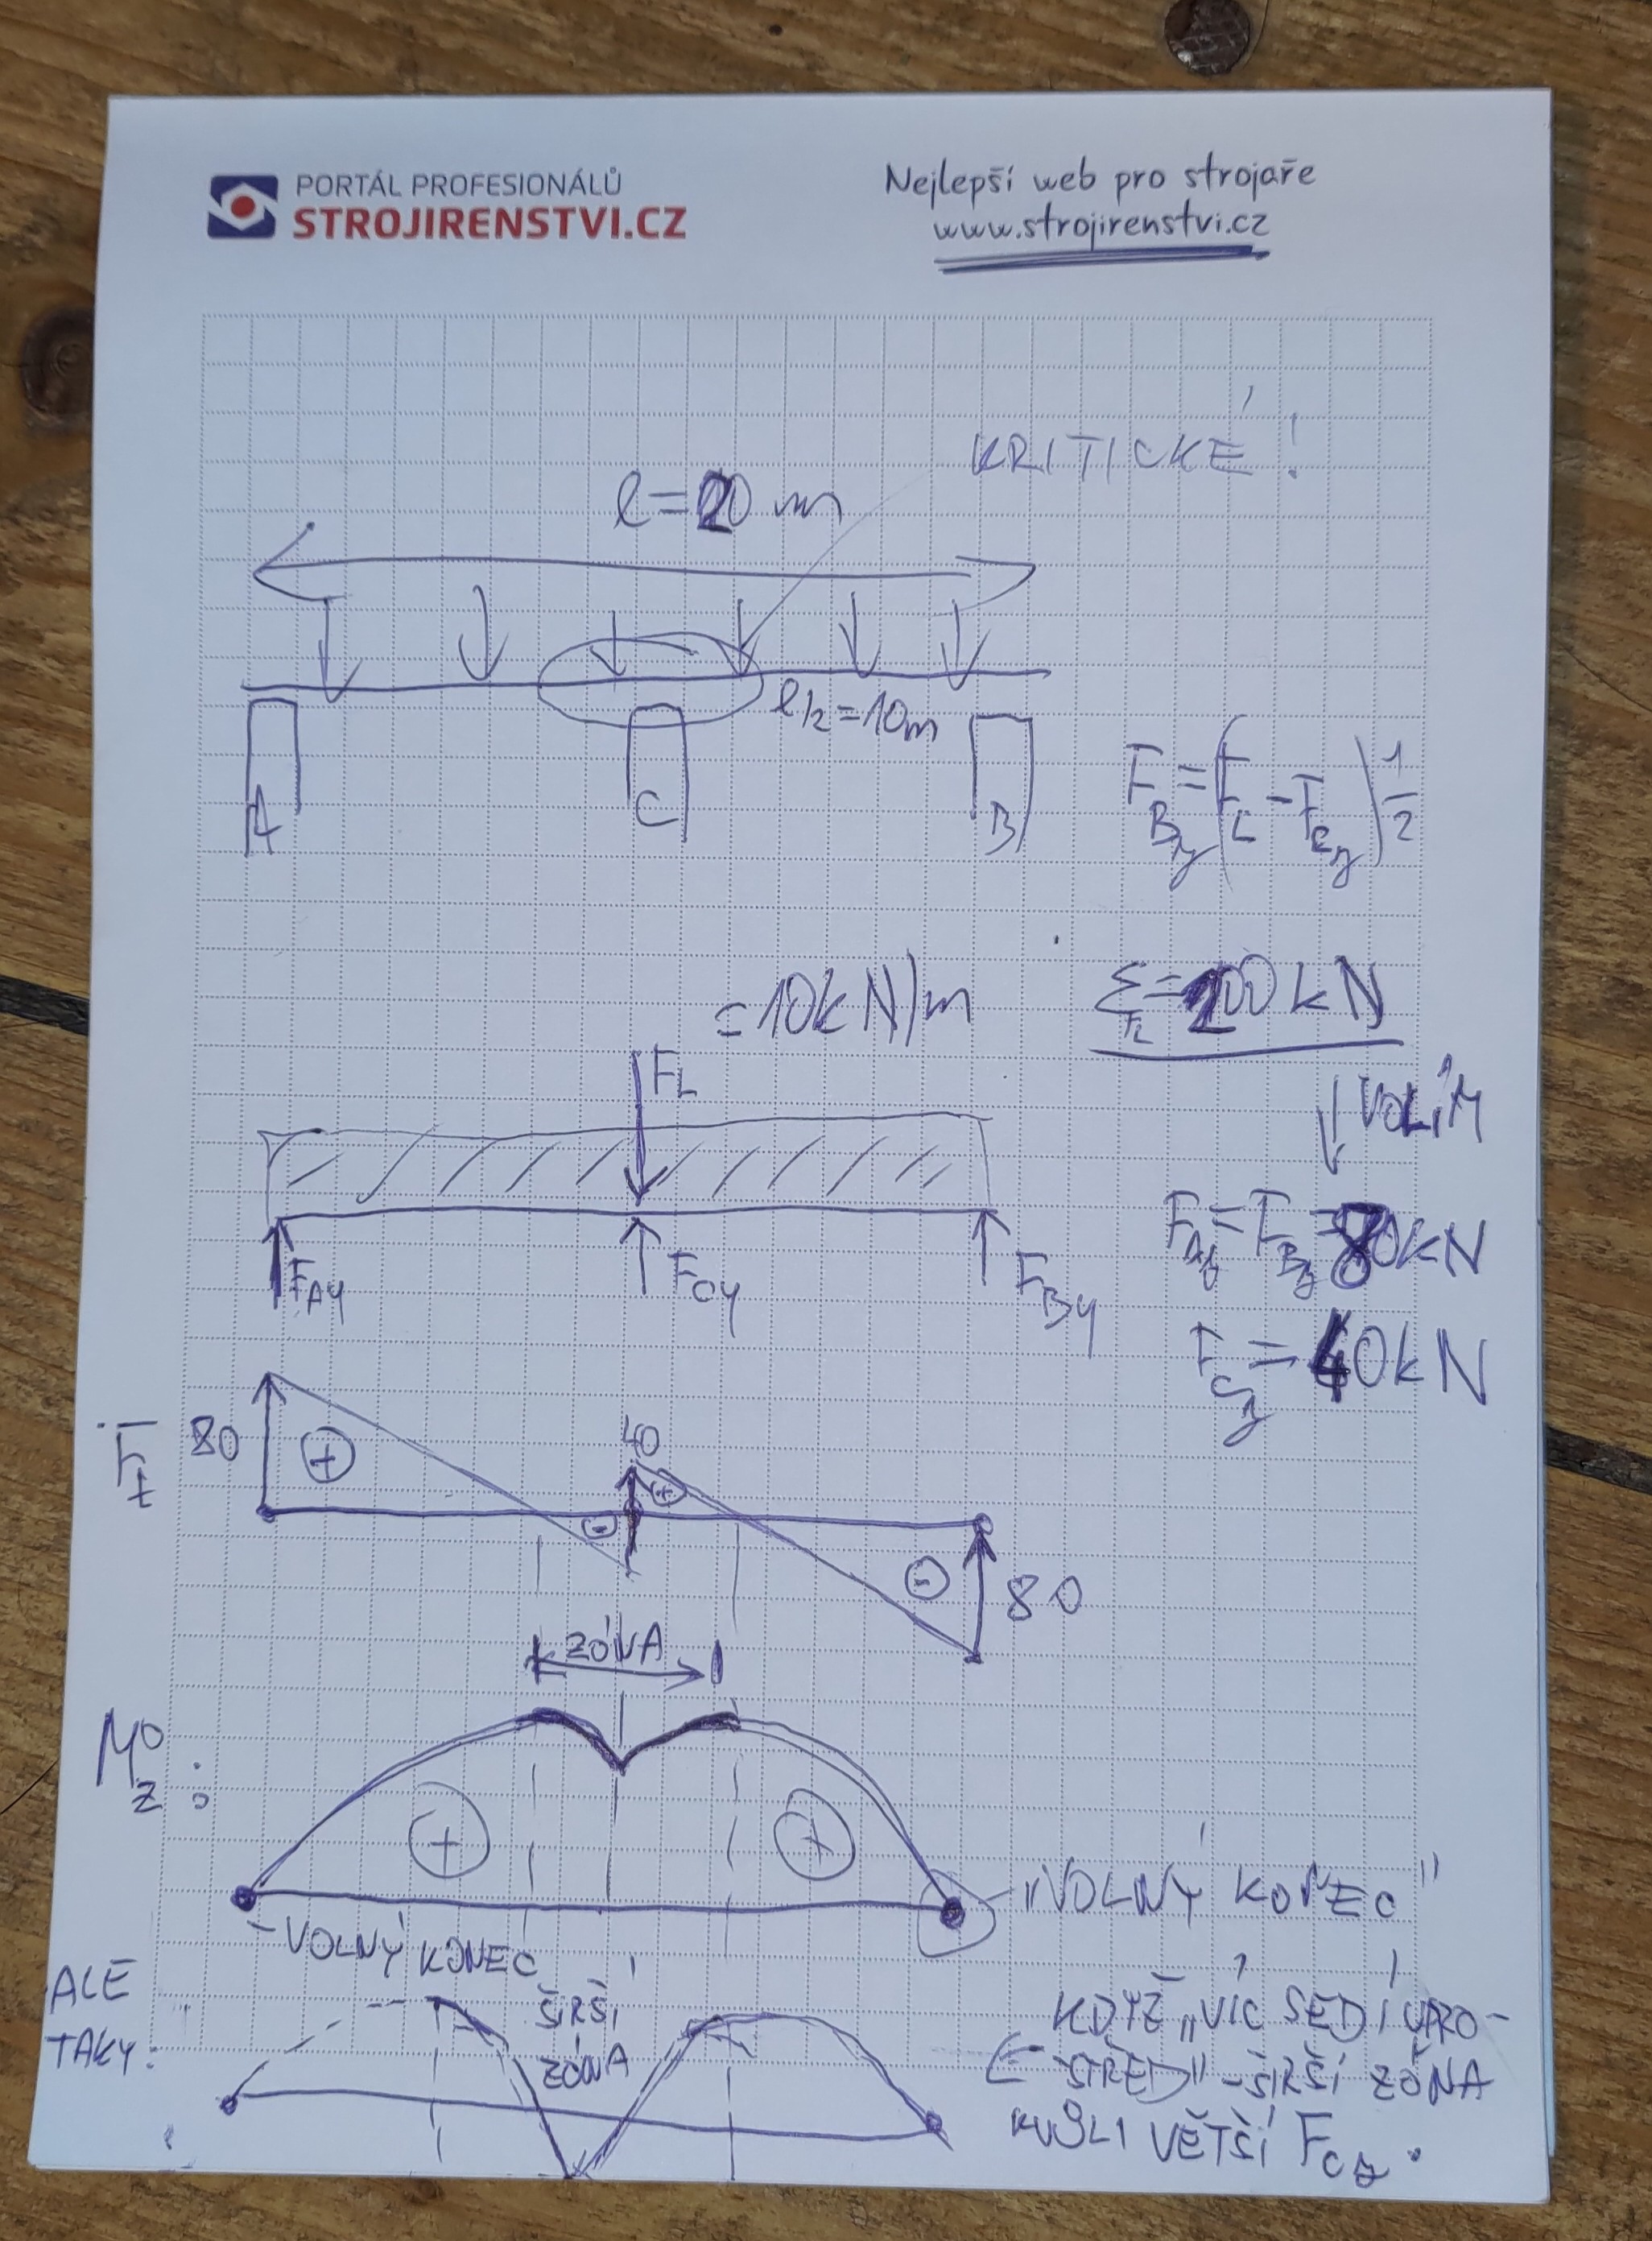 PORTÁL PROFESIONÁLŮ
STROJIRENSTVI.CZ
Nejlepší web pro strojaře
www.strojirenstvi.cz
KRITICKÉ!
l=20 m
l/2=10m
A
C
B
=10kN/m
FL
VOLÍM
FAY
FCY
FBY
80kN
=40kN
80
+
40
+
-
-
80
ZÓNA
+
+
"VOLNÝ KONEC"
-VOLNÝ KONEC
ALE
TAKY:
ŠIRŠÍ
ZÓNA
KDYŽ "VÍC SEDÍ UPRO-
STŘED" -ŠIRŠÍ ZÓNA
KVŮLI VĚTŠÍ